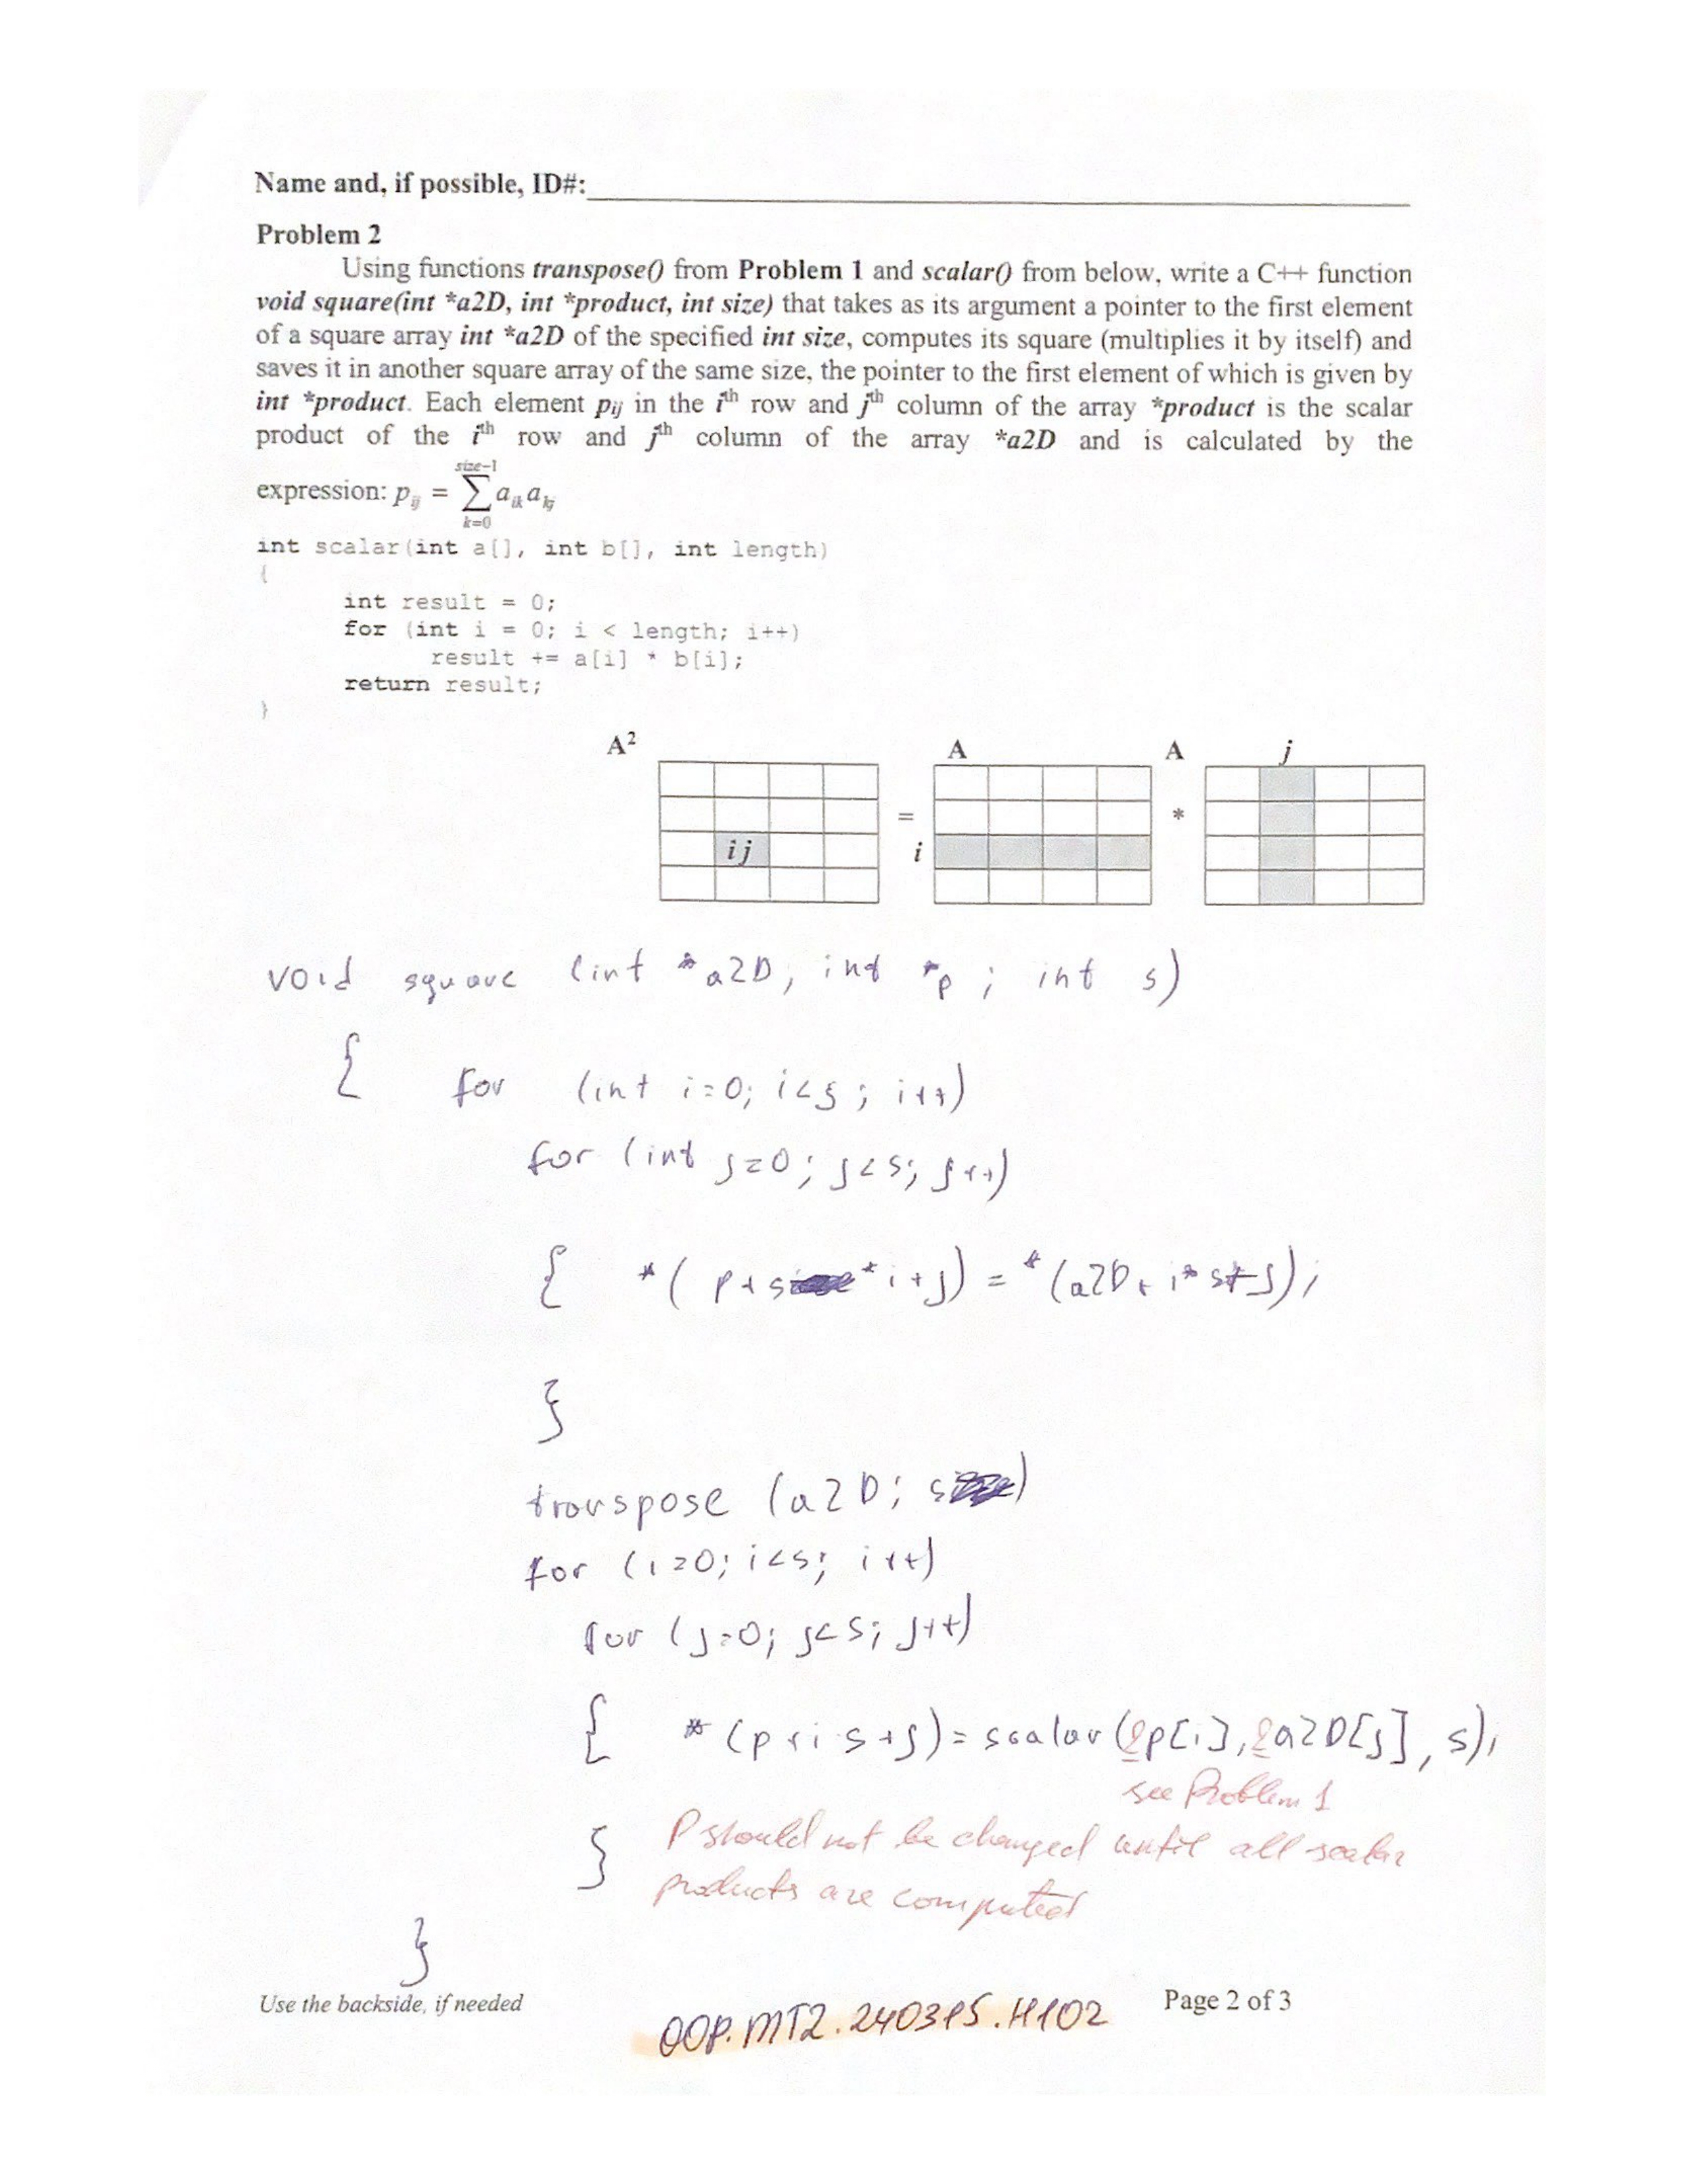 Name and, if possible, ID#:
Problem 2
Using functions transpose() from Problem 1 and scalar() from below, write a C++ function
void square(int *a2D, int *product, int size) that takes as its argument a pointer to the first element
of a square array int *a2D of the specified int size, computes its square (multiplies it by itself) and
saves it in another square array of the same size, the pointer to the first element of which is given by
int *product. Each element pij in the ith row and jth column of the array *product is the scalar
product of the ith row and jth column of the array *a2D and is calculated by the
size-1
expression: pij = ∑ aik akj
k=0
int scalar(int a[], int b[], int length)
{
int result = 0;
for (int i = 0; i < length; i++)
result += a[i] * b[i];
return result;
}
A² = A * A
j
i j
i
void square (int *a2D, int *p ; int s)
{ for (int i=0; i<s ; i++)
for (int j=0; j<s; j++)
{ *( p+s*i+j) = *(a2D+ i*s+j);
}
transpose (a2D; s)
for (i=0; i<s; i++)
for (j=0; j<s; j++)
{ *(p+i s+j)=scalar(&p[i],&a2D[j], s);
see Problem 1
} P should not be changed until all scalar
products are computed
}
Use the backside, if needed
OOP.MT2.240315.H102
Page 2 of 3